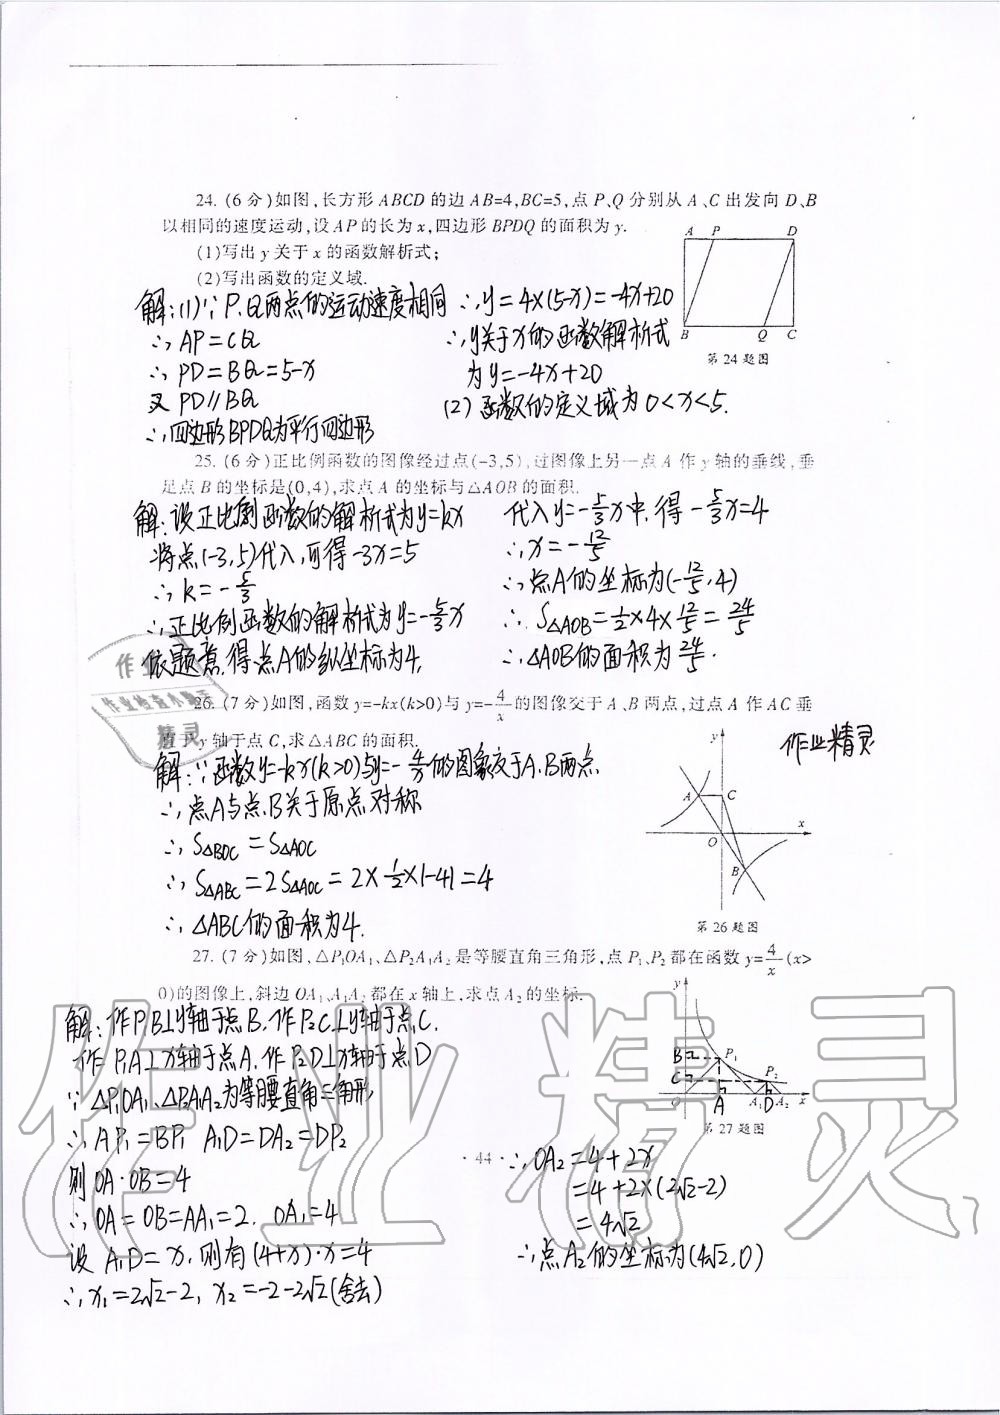 24. (6分)如图,长方形ABCD的边AB=4,BC=5,点P、Q分别从A、C出发向D、B
以相同的速度运动,设AP的长为x,四边形BPDQ的面积为y.
(1)写出y关于x的函数解析式;
(2)写出函数的定义域.
A P D
B Q C
第24题图
解:(1)∵P、Q两点的运动速度相同
∴AP=CQ
∴PD=BQ=5-x
又PD∥BQ
∴四边形BPDQ为平行四边形
∴y=4×(5-x)=-4x+20
∴y关于x的函数解析式
为y=-4x+20
(2)函数的定义域为0<x<5.
25. (6分)正比例函数的图像经过点(-3,5),过图像上另一点A作y轴的垂线,垂
足点B的坐标是(0,4),求点A的坐标与△AOB的面积.
解:设正比例函数的解析式为y=kx
将点(-3,5)代入,可得-3x=5
∴k=-5/3
∴正比例函数的解析式为y=-5/3x
依题意,得点A的纵坐标为4,
代入y=-5/3x中,得-5/3x=4
∴x=-12/5
∴点A的坐标为(-12/5,4)
∴S△AOB=1/2×4×12/5=24/5
∴△AOB的面积为24/5.
26. (7分)如图,函数y=-kx(k>0)与y=-4/x的图像交于A、B两点,过点A作AC垂
直于y轴于点C,求△ABC的面积.
作业精灵
解:∵函数y=-kx(k>0)与y=-4/x的图象交于A、B两点
∴点A与点B关于原点对称
∴S△BOC=S△AOC
∴S△ABC=2S△AOC=2×1/2×|-4|=4
∴△ABC的面积为4.
y
A C
x
O
B
第26题图
27. (7分)如图,△P₁OA₁、△P₂A₁A₂是等腰直角三角形,点P₁、P₂都在函数y=4/x(x>
0)的图像上,斜边OA₁、A₁A₂都在x轴上,求点A₂的坐标.
解:作P₁B⊥y轴于点B,作P₂C⊥y轴于点C,
作P₁A⊥x轴于点A,作P₂D⊥x轴于点D
∵△P₁OA₁、△P₂A₁A₂为等腰直角三角形
∴AP₁=BP₁ A₁D=DA₂=DP₂
则OA·OB=4
∴OA=OB=AA₁=2, OA₁=4
设A₁D=x,则有(4+x)·x=4
∴x₁=2√2-2, x₂=-2-2√2(舍去)
y
B P₁
C P₂
O A A₁ D A₂ x
第27题图
· 44 ·
∴OA₂=4+2x
=4+2×(2√2-2)
=4√2
∴点A₂的坐标为(4√2,0)
作业
作业检查小帮手
精灵
作业精灵